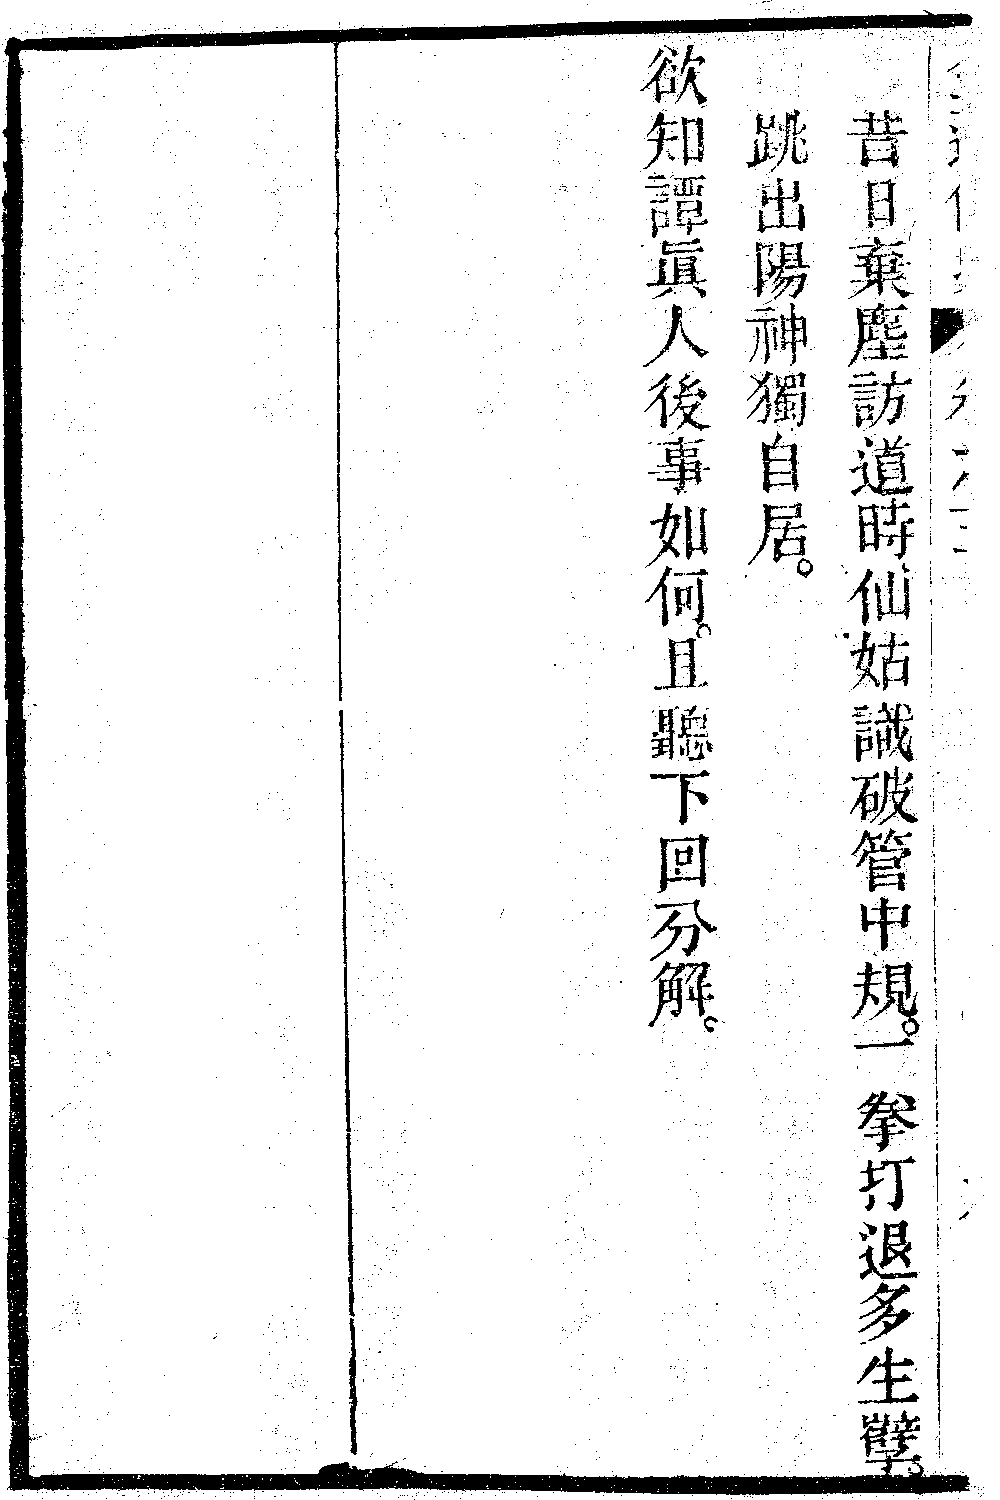 昔日棄塵訪道時仙姑識破管中規。一拳打退多生孽。
跳出陽神獨自居。
欲知譚眞人後事如何。且聽下回分解。